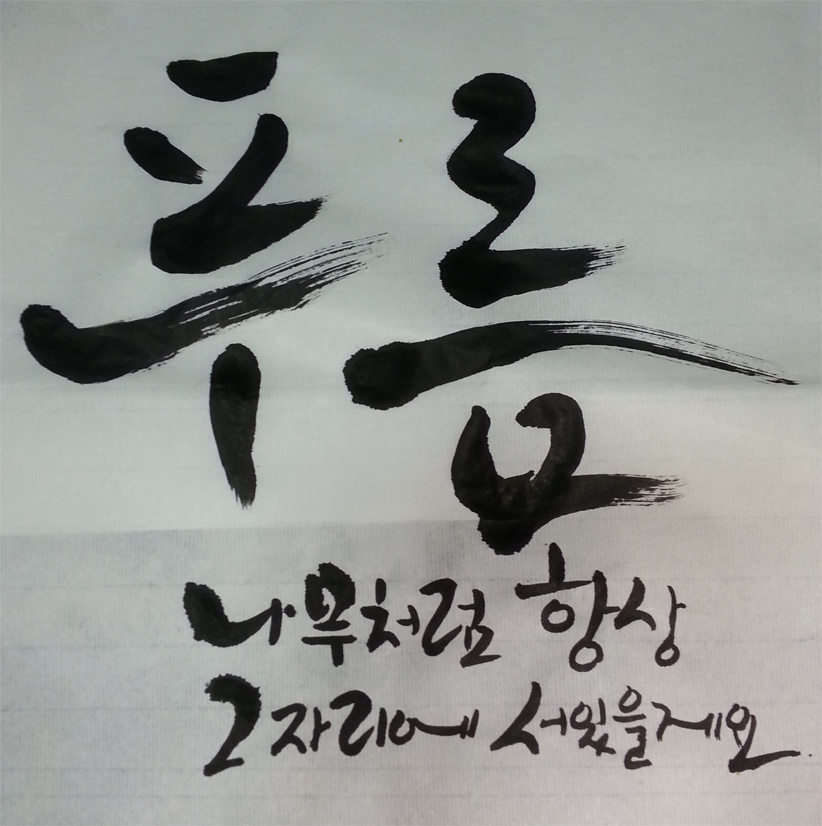 푸름
나무처럼 항상
그 자리에 서있을게요